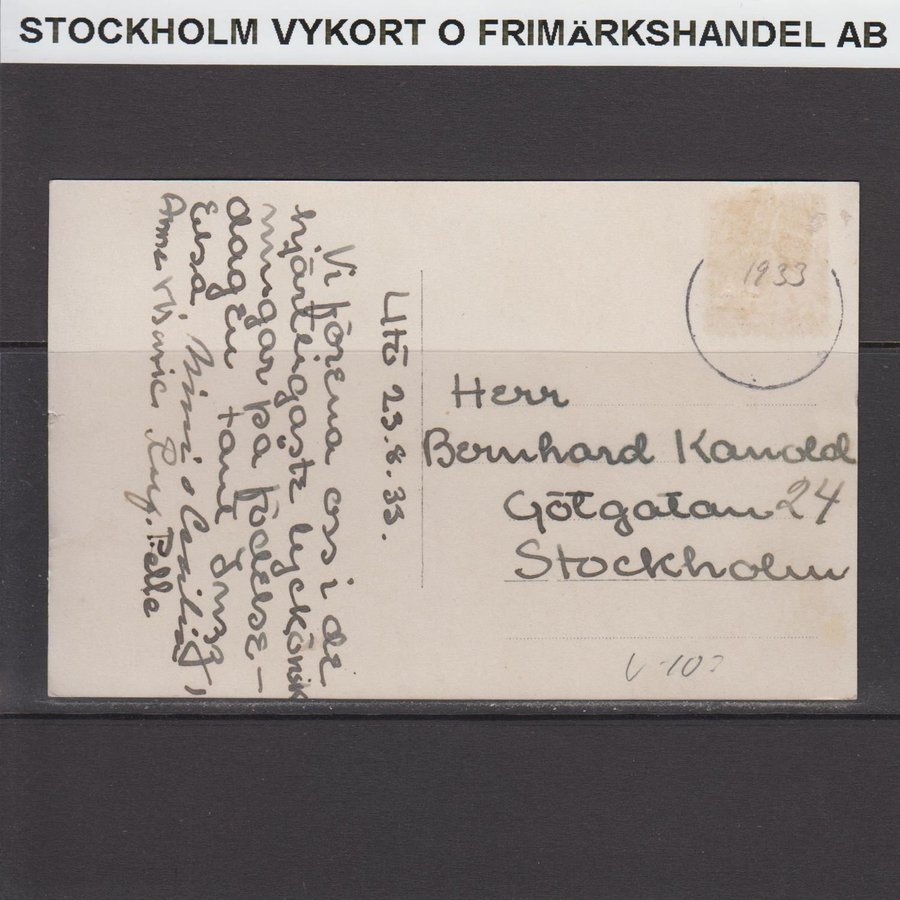 STOCKHOLM VYKORT O FRIMÄRKSHANDEL AB
1933
Utö 23.8.33.
Vi förena oss i de
hjärtligaste lyckönsk
ningar på födelse-
dagen tant
Elsa, Mimi o
Anna
Herr
Bernhard Kanold
Götgatan 24
Stockholm